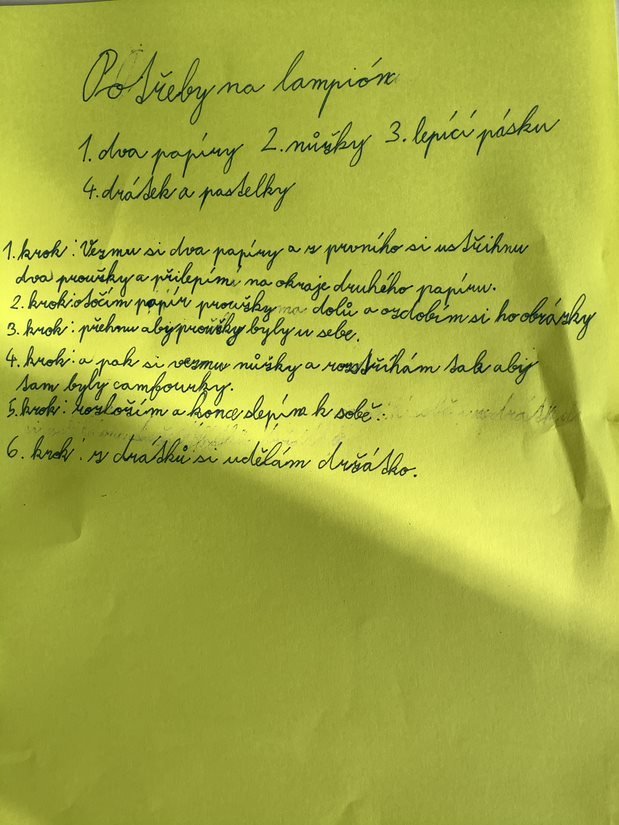 Potřeby na lampión
1. dva papíry 2. nůžky 3. lepící pásku
4. drátek a pastelky
1. krok: Vezmu si dva papíry a z prvního si ustřihnu
dva proužky a přilepími na okraje druhého papíru.
2. krok: otočím papír proužky na dolů a ozdobím si ho obrázky
3. krok: přehnu aby proužky byly u sebe.
4. krok: a pak si vezmu nůžky a rozstříhám tak aby
tam byly campourky.
5. krok: rozložím a konce slepím k sobě.
6. krok: z drátků si udělám držátko.